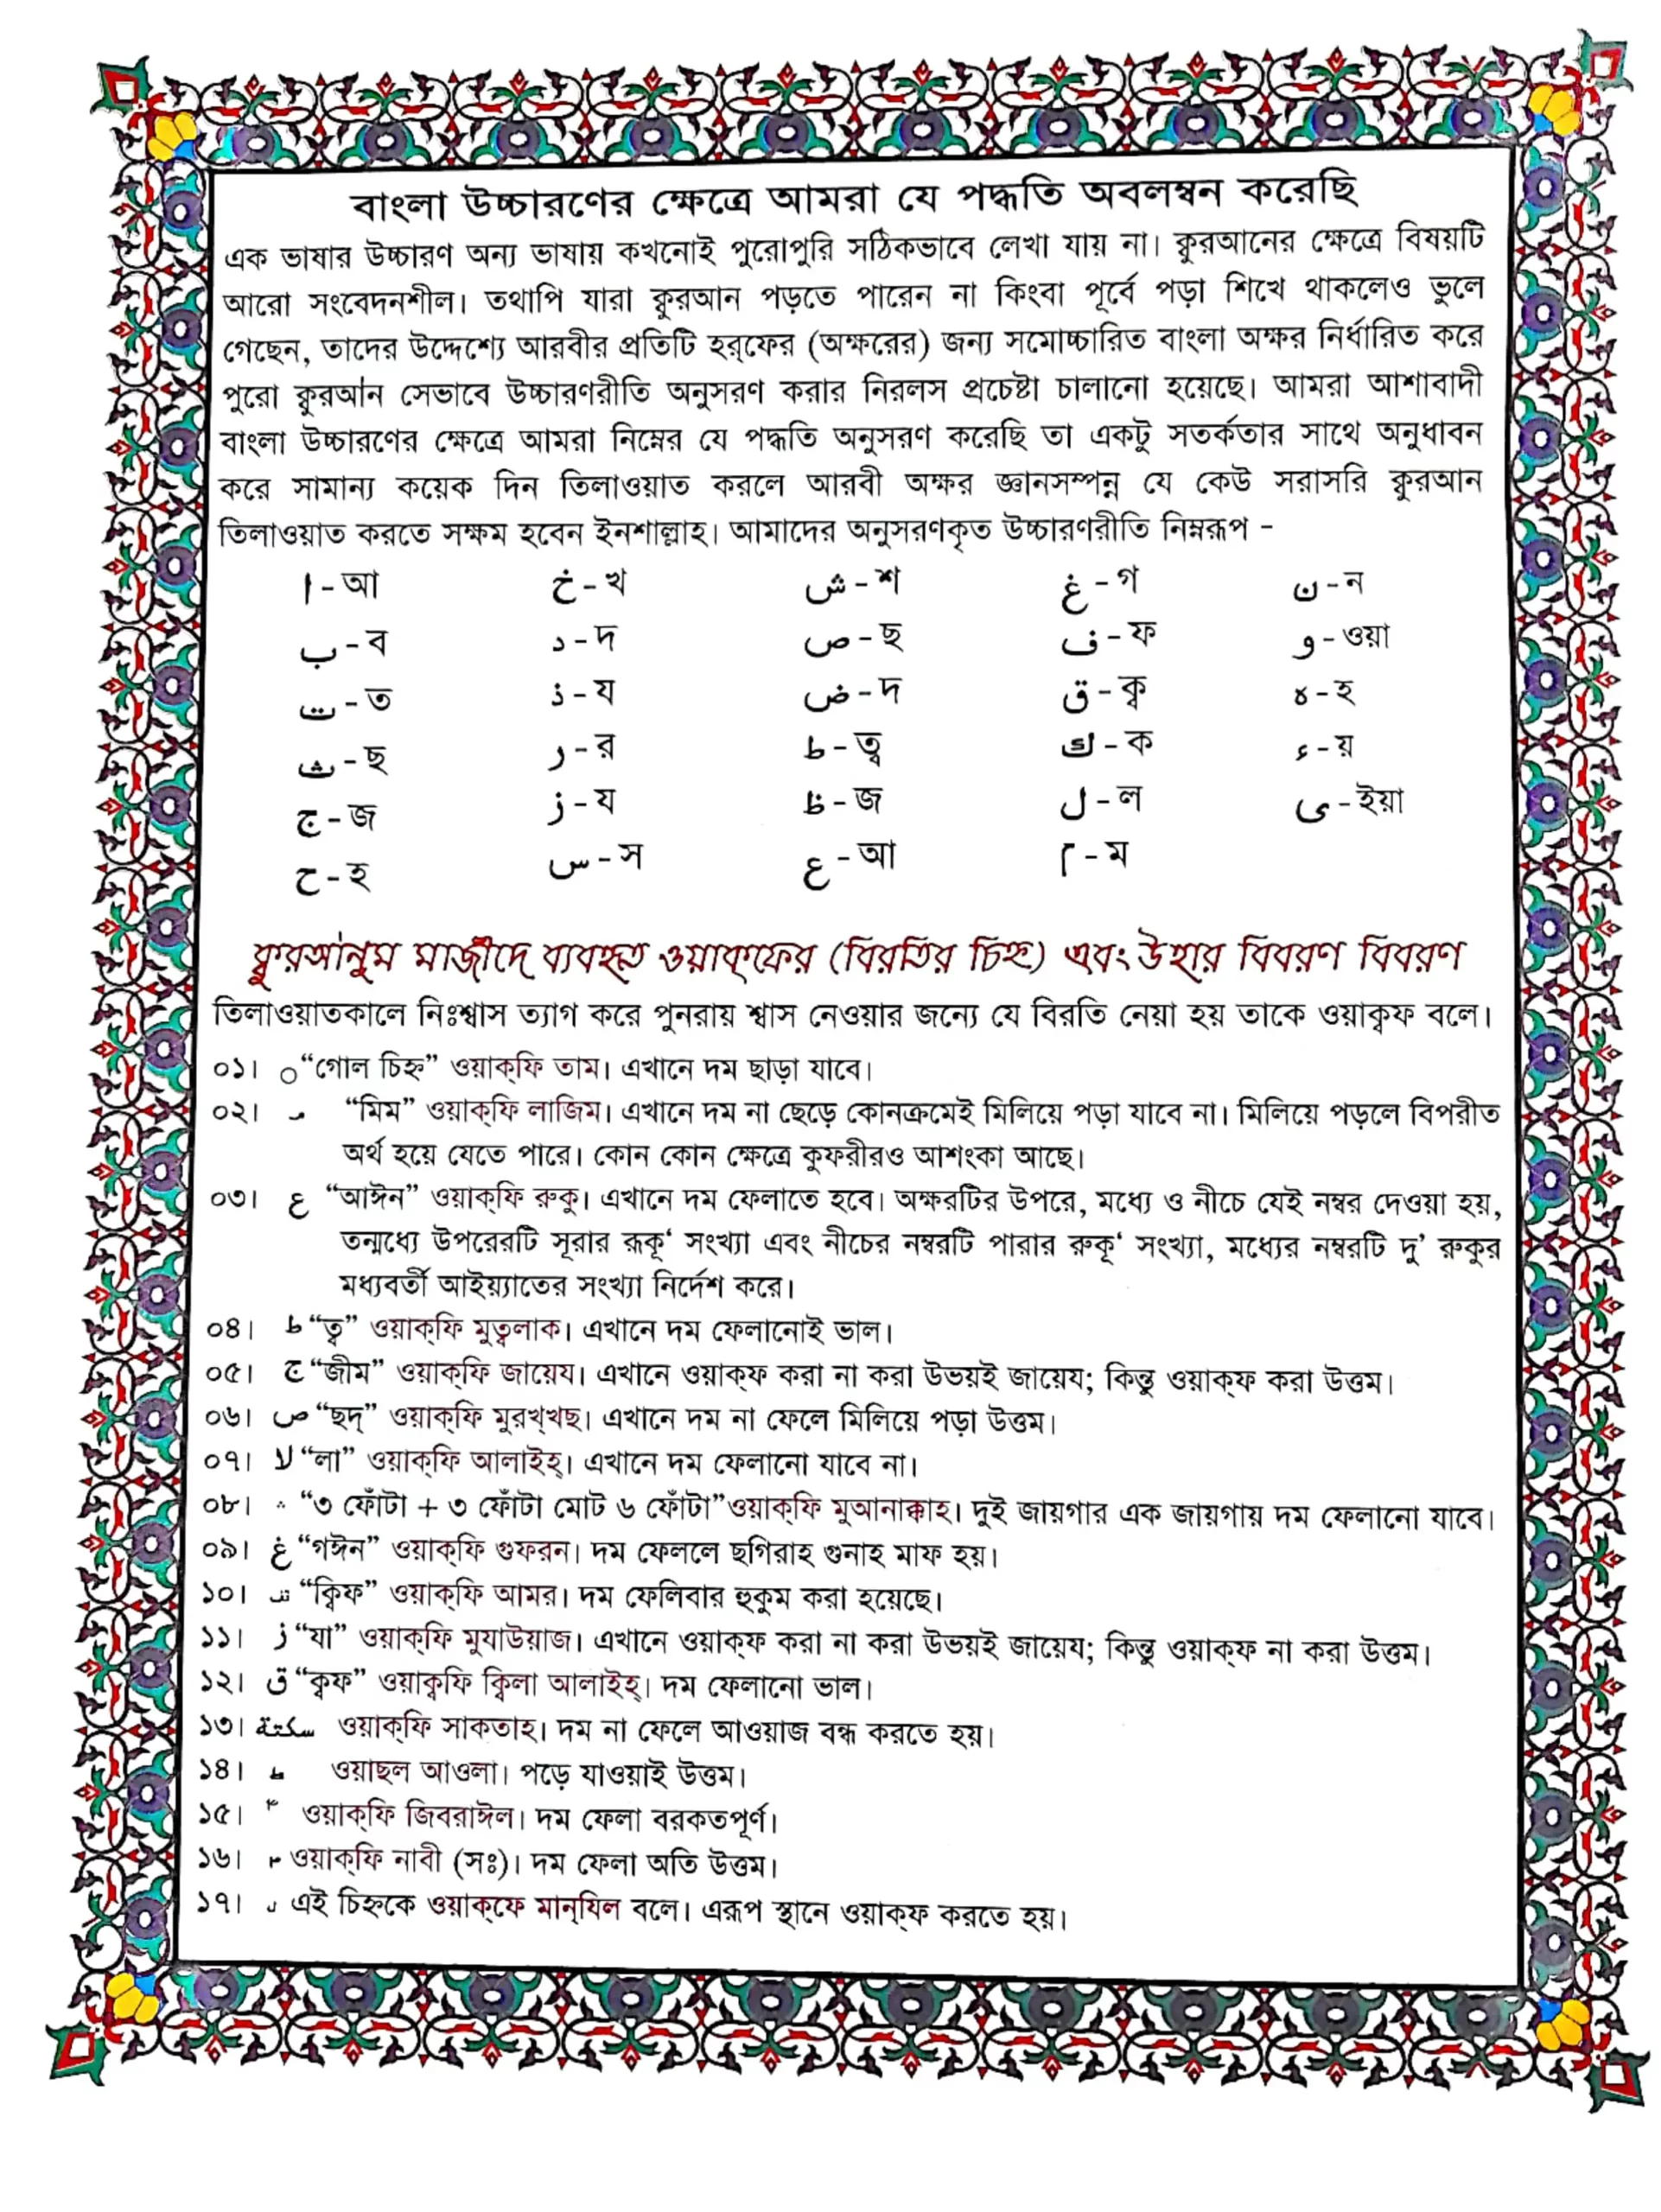 বাংলা উচ্চারণের ক্ষেত্রে আমরা যে পদ্ধতি অবলম্বন করেছি
এক ভাষার উচ্চারণ অন্য ভাষায় কখনোই পুরোপুরি সঠিকভাবে লেখা যায় না। ক্বুরআনের ক্ষেত্রে বিষয়টি
আরো সংবেদনশীল। তথাপি যারা ক্বুরআন পড়তে পারেন না কিংবা পূর্বে পড়া শিখে থাকলেও ভুলে
গেছেন, তাদের উদ্দেশ্যে আরবীর প্রতিটি হর্‌ফের (অক্ষরের) জন্য সমোচ্চারিত বাংলা অক্ষর নির্ধারিত করে
পুরো ক্বুরআন সেভাবে উচ্চারণরীতি অনুসরণ করার নিরলস প্রচেষ্টা চালানো হয়েছে। আমরা আশাবাদী
বাংলা উচ্চারণের ক্ষেত্রে আমরা নিম্নের যে পদ্ধতি অনুসরণ করেছি তা একটু সতর্কতার সাথে অনুধাবন
করে সামান্য কয়েক দিন তিলাওয়াত করলে আরবী অক্ষর জ্ঞানসম্পন্ন যে কেউ সরাসরি ক্বুরআন
তিলাওয়াত করতে সক্ষম হবেন ইনশাল্লাহ। আমাদের অনুসরণকৃত উচ্চারণরীতি নিম্নরূপ -
ا - আ خ - খ ش - শ غ - গ ن - ন
ب - ব د - দ ص - ছ ف - ফ و - ওয়া
ت - ত ذ - য ض - দ ق - ক্ব ه - হ
ث - ছ ر - র ط - ত্ব ك - ক ء - য়
ج - জ ز - য ظ - জ ل - ল ى - ইয়া
ح - হ س - স ع - আ م - ম
ক্বুরআনুম মাজীদে ব্যবহৃত ওয়াক্‌ফের (বিরতির চিহ্ন) এবং উহার বিবরণ বিবরণ
তিলাওয়াতকালে নিঃশ্বাস ত্যাগ করে পুনরায় শ্বাস নেওয়ার জন্যে যে বিরতি নেয়া হয় তাকে ওয়াক্বফ বলে।
০১। ○ “গোল চিহ্ন” ওয়াক্‌ফি তাম। এখানে দম ছাড়া যাবে।
০২। مـ “মিম” ওয়াক্‌ফি লাজিম। এখানে দম না ছেড়ে কোনক্রমেই মিলিয়ে পড়া যাবে না। মিলিয়ে পড়লে বিপরীত
অর্থ হয়ে যেতে পারে। কোন কোন ক্ষেত্রে কুফরীরও আশংকা আছে।
০৩। ع “আঈন” ওয়াক্‌ফি রুকু। এখানে দম ফেলাতে হবে। অক্ষরটির উপরে, মধ্যে ও নীচে যেই নম্বর দেওয়া হয়,
তন্মধ্যে উপরেরটি সূরার রূকূ‘ সংখ্যা এবং নীচের নম্বরটি পারার রুকূ‘ সংখ্যা, মধ্যের নম্বরটি দু’ রুকুর
মধ্যবর্তী আইয়্যাতের সংখ্যা নির্দেশ করে।
০৪। ط “ত্ব” ওয়াক্‌ফি মুত্বলাক। এখানে দম ফেলানোই ভাল।
০৫। ج “জীম” ওয়াক্‌ফি জায়েয। এখানে ওয়াক্‌ফ করা না করা উভয়ই জায়েয; কিন্তু ওয়াক্‌ফ করা উত্তম।
০৬। ص “ছদ্‌” ওয়াক্‌ফি মুরখ্‌খছ। এখানে দম না ফেলে মিলিয়ে পড়া উত্তম।
০৭। لا “লা” ওয়াক্‌ফি আলাইহ্‌। এখানে দম ফেলানো যাবে না।
০৮। ∴ “৩ ফোঁটা + ৩ ফোঁটা মোট ৬ ফোঁটা”ওয়াক্‌ফি মুআনাক্কাহ। দুই জায়গার এক জায়গায় দম ফেলানো যাবে।
০৯। غ “গঈন” ওয়াক্‌ফি গুফরন। দম ফেললে ছগিরাহ গুনাহ মাফ হয়।
১০। “ক্বিফ” ওয়াক্‌ফি আমর। দম ফেলিবার হুকুম করা হয়েছে।
১১। ز “যা” ওয়াক্‌ফি মুযাউয়াজ। এখানে ওয়াক্‌ফ করা না করা উভয়ই জায়েয; কিন্তু ওয়াক্‌ফ না করা উত্তম।
১২। ق “ক্বফ” ওয়াক্বফি ক্বিলা আলাইহ্‌। দম ফেলানো ভাল।
১৩। سكتة ওয়াক্‌ফি সাকতাহ। দম না ফেলে আওয়াজ বন্ধ করতে হয়।
১৪। ওয়াছল আওলা। পড়ে যাওয়াই উত্তম।
১৫। ওয়াক্‌ফি জিবরাঈল। দম ফেলা বরকতপূর্ণ।
১৬। ওয়াক্‌ফি নাবী (সঃ)। দম ফেলা অতি উত্তম।
১৭। এই চিহ্নকে ওয়াক্‌ফে মান্‌যিল বলে। এরূপ স্থানে ওয়াক্‌ফ করতে হয়।